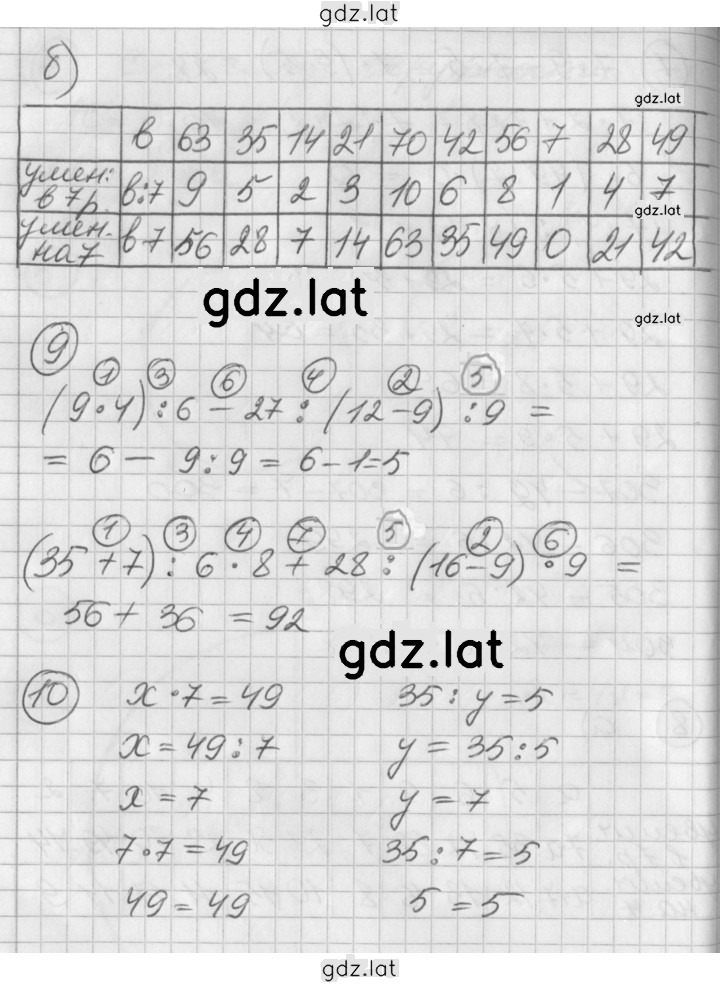 gdz.lat
б)
gdz.lat
в 63 35 14 21 70 42 56 7 28 49
умен: в 7 р. в:7 9 5 2 3 10 6 8 1 4 7
gdz.lat
умен- на 7 в 7 56 28 7 14 63 35 49 0 21 42
gdz.lat
gdz.lat
9
1 3 6 4 2 5
(9·4):6-27:(12-9):9=
= 6 - 9:9=6-1=5
1 3 4 7 5 2 6
(35+7):6·8+28:(16-9)·9 =
56+36 =92
gdz.lat
10 x·7=49 35:y=5
x=49:7 y=35:5
x=7 y=7
7·7=49 35:7=5
49=49 5=5
gdz.lat